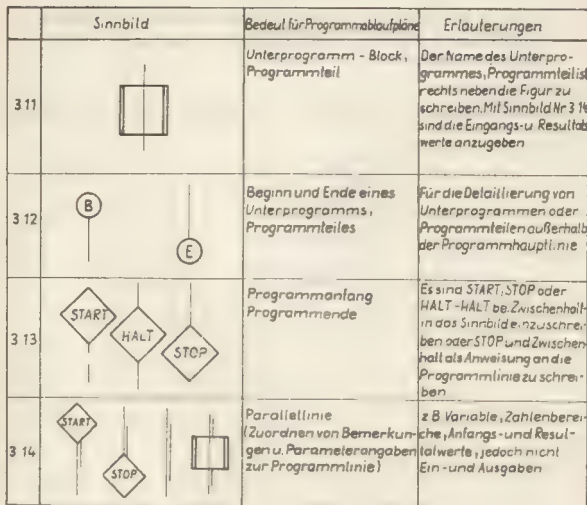 Sinnbild
Bedeut für Programmablaufpläne
Erläuterungen
3 11
Unterprogramm - Block,
Programmteil
Der Name des Unterpro-
grammes, Programmteil ist
rechts neben die Figur zu
schreiben. Mit Sinnbild Nr 3 14
sind die Eingangs- u Resultats
werte anzugeben
3 12
B
E
Beginn und Ende eines
Unterprogramms,
Programmteiles
Für die Detaillierung von
Unterprogrammen oder
Programmteilen außerhalb
der Programmhauptlinie
3 13
START
HALT
STOP
Programmanfang
Programmende
Es sind START, STOP oder
HALT - HALT be. Zwischenhalt-
in das Sinnbild einzuschrei-
ben oder STOP und Zwischen-
halt als Anweisung an die
Programmlinie zu schrei-
ben
3 14
START
STOP
Parallellinie
(Zuordnen von Bemerkun-
gen u. Parameterangaben
zur Programmlinie)
z B Variable, Zahlenberei-
che, Anfangs- und Resul-
tatwerte, jedoch nicht
Ein - und Ausgaben